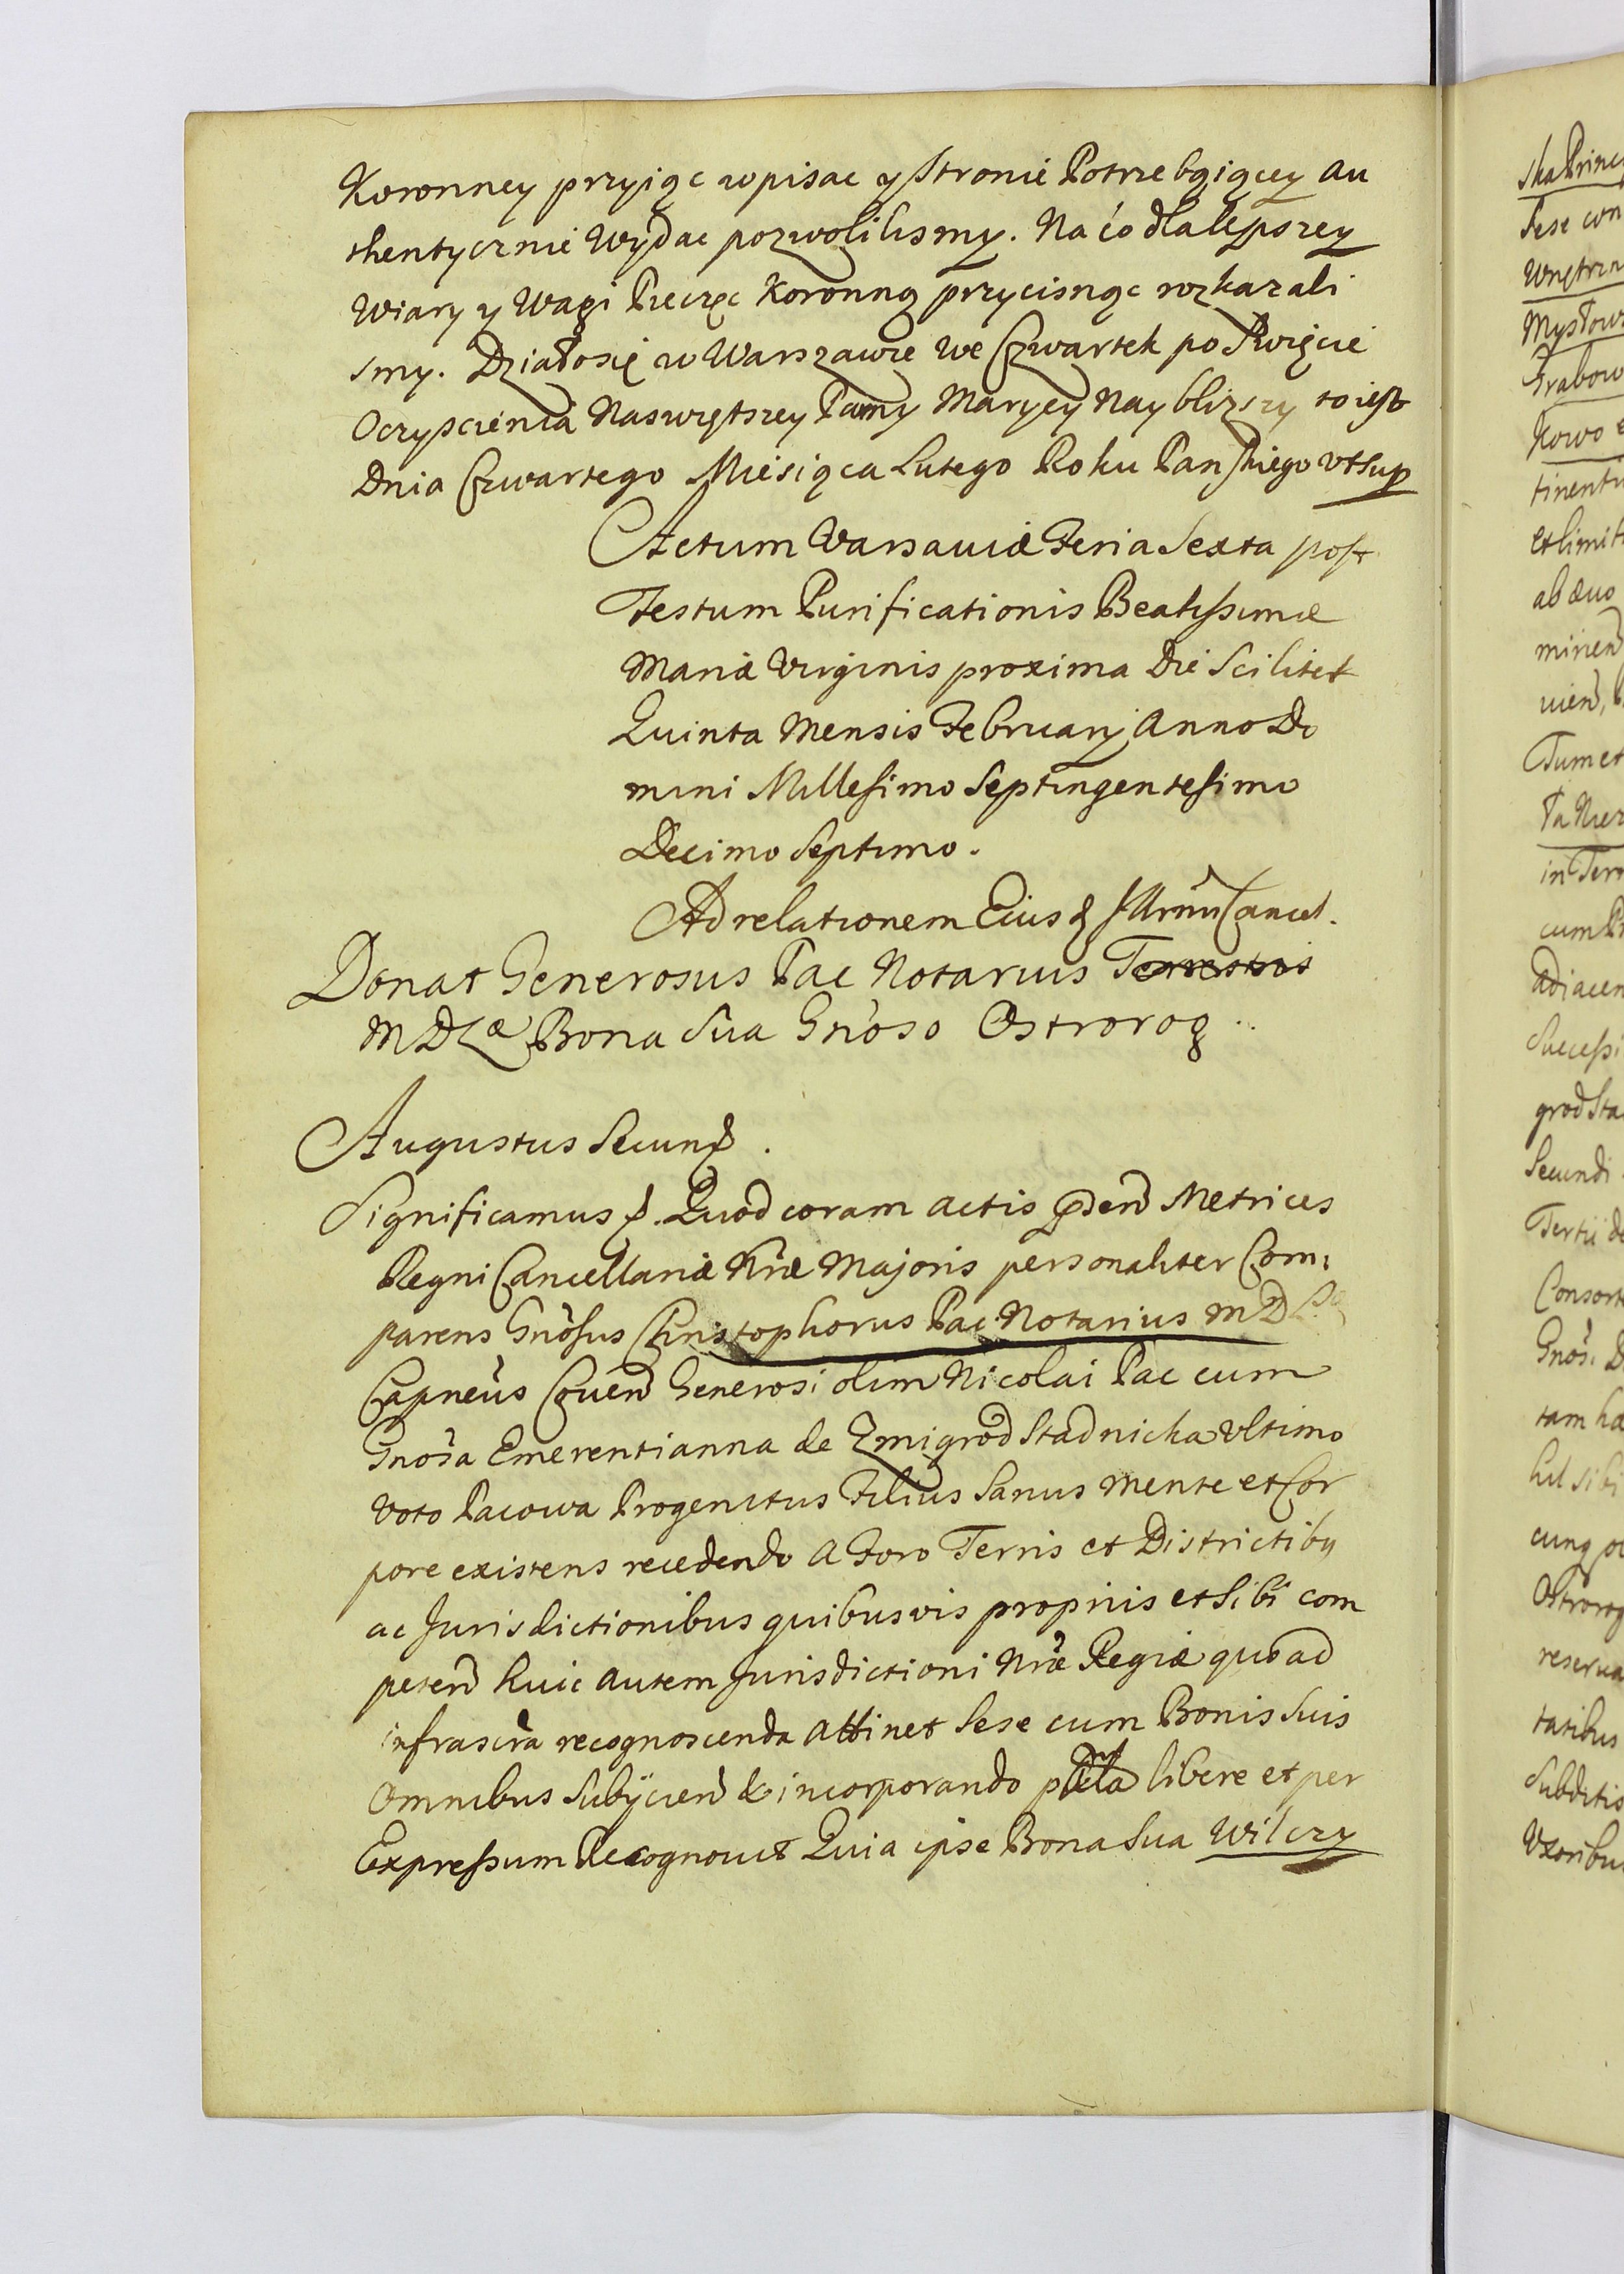 Koronney przyiąc wpisac y stronie Potrzebuiącey au
thentycznie Wydac pozwolilismy. Na co dla lepszey
Wiary y Wagi Pieczęc Koronną przycisnąc rozkazali
smy. Działo się w Warszawie We Czwartek po Swięcie
Oczyscienia Naswiętszey Panny Maryey Nayblizszy to iest
Dnia Czwartego Miesiąca Lutego Roku Panskiego vt sup
Actum Varsaviæ Feria Sexta post
Festum Purificationis Beatissimæ
Mariæ Virginis proxima Die Scilicet
Quinta Mensis Februarij Anno Do
mini Millesimo Septingentesimo
Decimo Septimo.
Ad relationem Eius Cancel.
Donat Generosus Pac Notarius Terrestris
M D L æ Bona Sua Gnoso Ostrorog
Augustus Secund.
Significamus &. Quod coram actis psen Metrices
Regni Cancellariæ Nræ Majoris personaliter Com:
parens Gnosus Christophorus Pac Notarius M D
Capneus Covien Generosi olim Nicolai Pac cum
Gnosa Emerentianna de Zmigrod Stadnicka Ultimo
voto Pacowa Progenitus Filius Sanus mente et Cor
pore existens recedendo a Foro Terris et Districtibus
ac Jurisdictionibus quibusvis proprijs et Sibi com
peten huic autem Jurisdictioni Nræ Regiæ quoad
infrascra recognoscenda attinet Sese cum Bonis Suis
Omnibus Subijcien & incorporando libere et per
Expressum Recognovit Quia ipse Bona Sua Wilczy
ska
Sese con
Grabow
Kowo e
tinent
et limit
ab æuo
minen
uien,
Tum et
in Terr
cum
adiacen
Successi
grod Sta
Secundi
Tertii de
Consort
Gnosi D
tam hæ
hil sibi
Ostrorog
reserua
tatibus
Subditis
Uxoribu